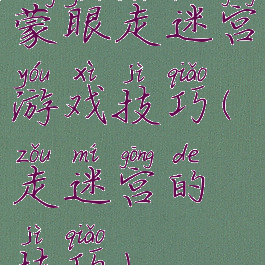 蒙眼走迷宫
yóu xì jì qiǎo
游戏技巧(
zǒu mí gōng de
走迷宫的
jì qiǎo
技巧)